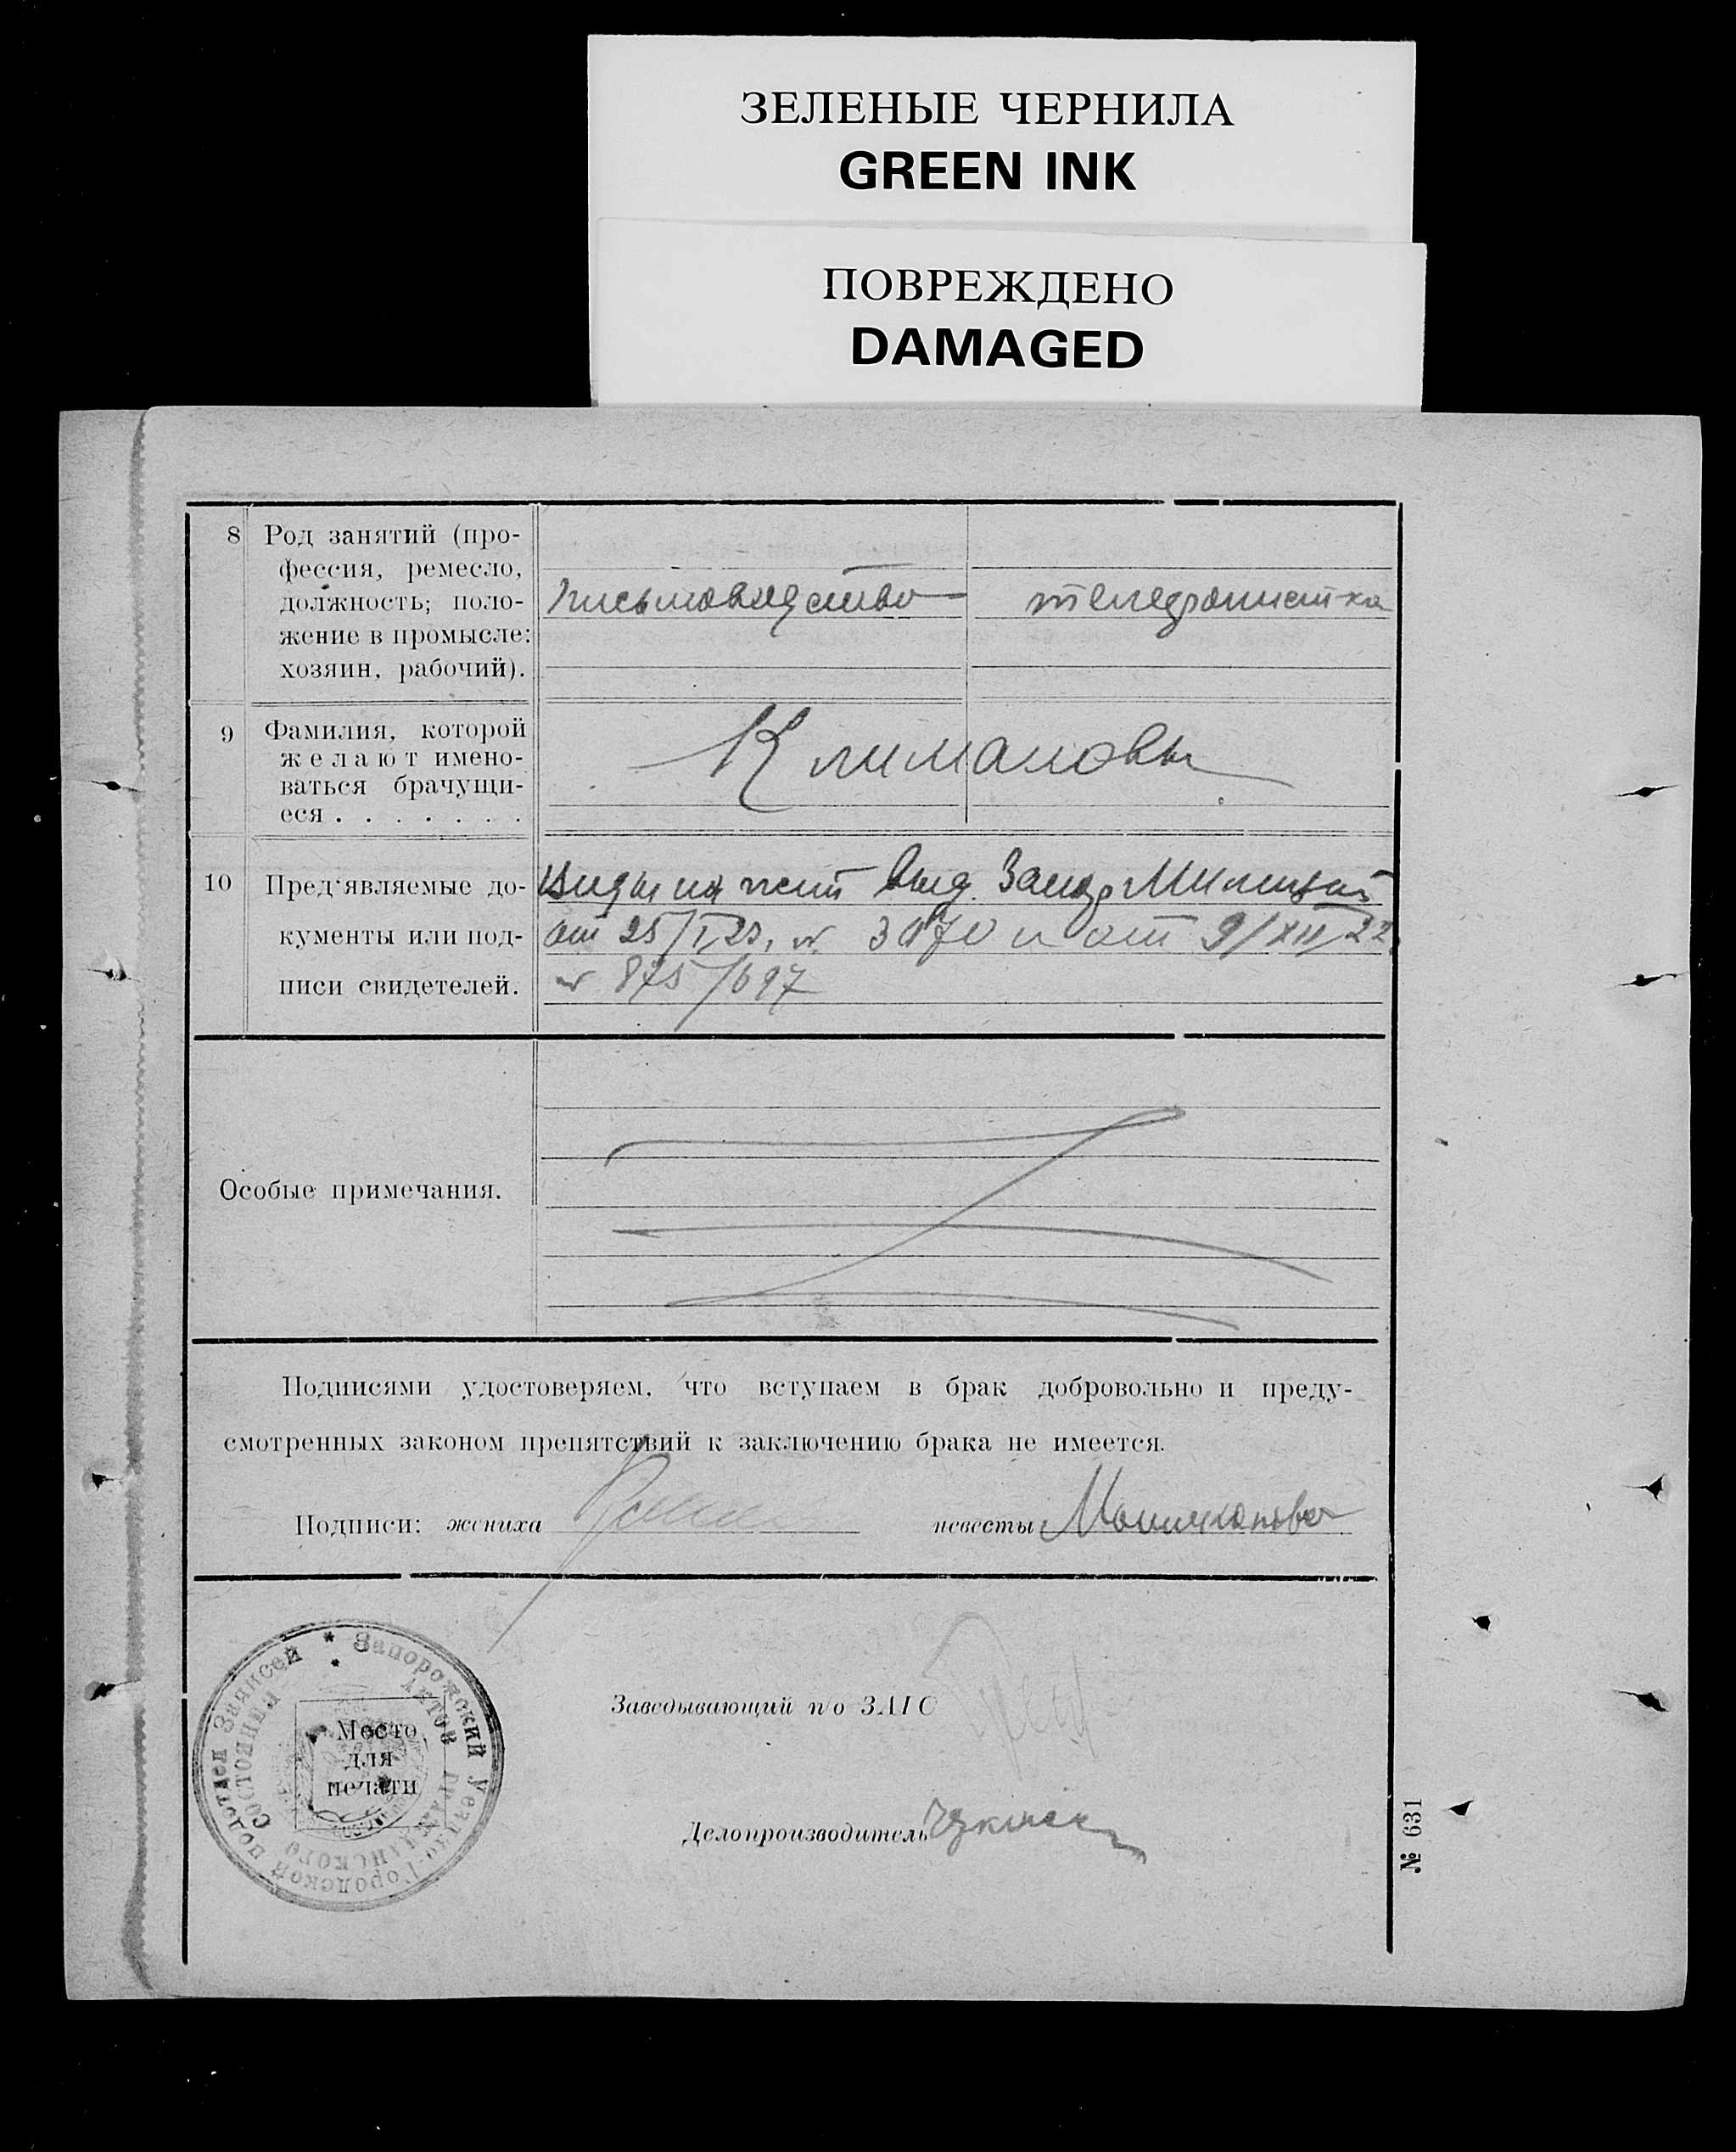 ЗЕЛЕНЫЕ ЧЕРНИЛА
GREEN INK
ПОВРЕЖДЕНО
DAMAGED
8 Род занятий (про-
фессия, ремесло,
должность; поло-
жение в промысле:
хозяин, рабочий).
письмоводство
телефонистка
9 Фамилия, которой
желают имено-
ваться брачущи-
еся . . . . . . .
Климановы
10 Пред'являемые до-
кументы или под-
писи свидетелей.
Виды на жит выд. Запор Милицией
от 25/I 23, № 3070 и от 9/XII 22
№ 875/697
Особые примечания.
Подписями удостоверяем, что вступаем в брак добровольно и преду-
смотренных законом препятствий к заключению брака не имеется.
Подписи: жениха
невесты
Запорожский Уездно-Городской подотдел Записей
актов гражданского состояния
Место
для
печати
Заведывающий п/о ЗАГС
Делопроизводитель
№ 631